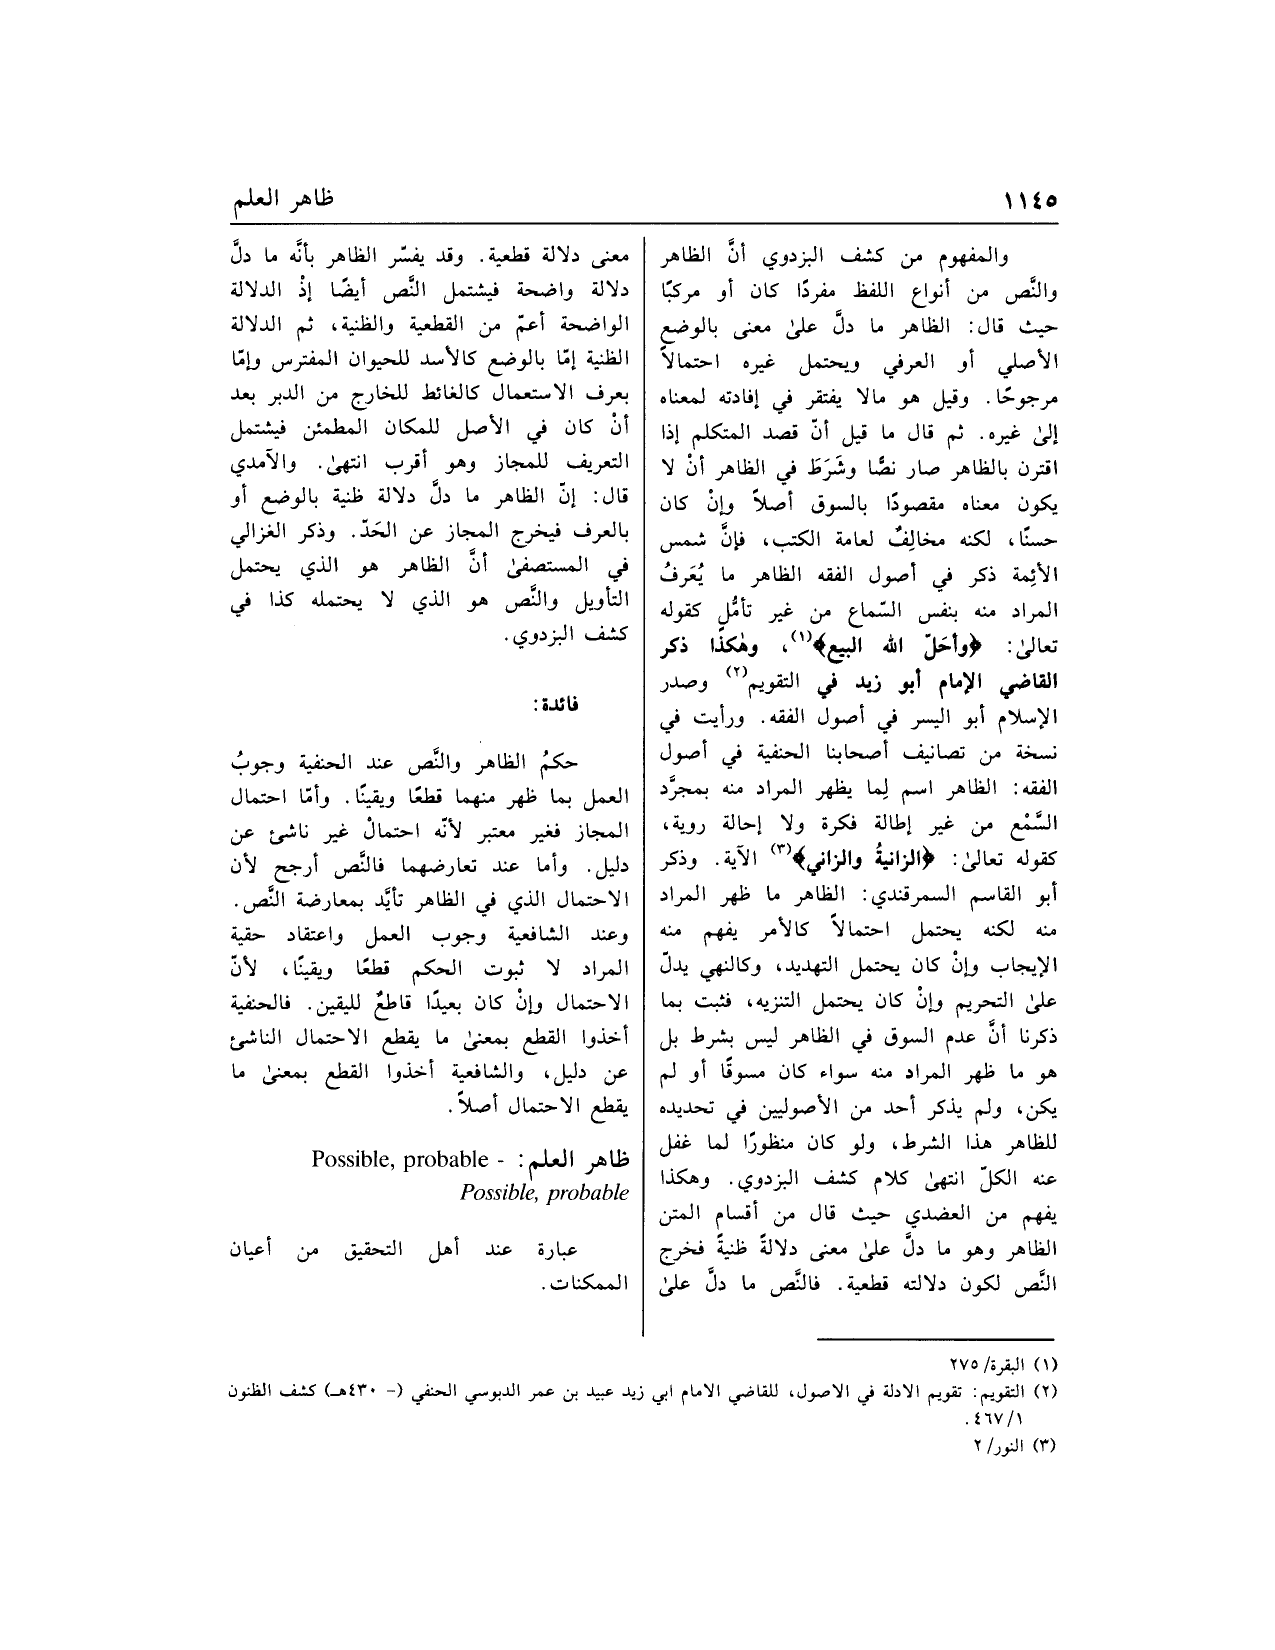 ١١٤٥
ظاهر العلم
والمفهوم من كشف البزدوي أنَّ الظاهر
والنَّص من أنواع اللفظ مفردًا كان أو مركبًا
حيث قال: الظاهر ما دلَّ علىٰ معنى بالوضع
الأصلي أو العرفي ويحتمل غيره احتمالاً
مرجوحًا. وقيل هو مالا يفتقر في إفادته لمعناه
إلىٰ غيره. ثم قال ما قيل أنّ قصد المتكلم إذا
اقترن بالظاهر صار نصًّا وشَرَطَ في الظاهر أنْ لا
يكون معناه مقصودًا بالسوق أصلاً وإنْ كان
حسنًا، لكنه مخالِفٌ لعامة الكتب، فإنَّ شمس
الأئِمة ذكر في أصول الفقه الظاهر ما يُعَرفُ
المراد منه بنفس السّماع من غير تأمُّلٍ كقوله
تعالىٰ: ﴿وأحَلّ الله البيع﴾(١)، وهٰكذا ذكر
القاضي الإمام أبو زيد في التقويم(٢) وصدر
الإسلام أبو اليسر في أصول الفقه. ورأيت في
نسخة من تصانيف أصحابنا الحنفية في أصول
الفقه: الظاهر اسم لِما يظهر المراد منه بمجرَّد
السَّمْع من غير إطالة فكرة ولا إحالة روية،
كقوله تعالىٰ: ﴿الزانيةُ والزاني﴾(٣) الآية. وذكر
أبو القاسم السمرقندي: الظاهر ما ظهر المراد
منه لكنه يحتمل احتمالاً كالأمر يفهم منه
الإيجاب وإنْ كان يحتمل التهديد، وكالنهي يدلّ
علىٰ التحريم وإنْ كان يحتمل التنزيه، فثبت بما
ذكرنا أنَّ عدم السوق في الظاهر ليس بشرط بل
هو ما ظهر المراد منه سواء كان مسوقًا أو لم
يكن، ولم يذكر أحد من الأصوليين في تحديده
للظاهر هذا الشرط، ولو كان منظورًا لما غفل
عنه الكلّ انتهىٰ كلام كشف البزدوي. وهكذا
يفهم من العضدي حيث قال من أقسام المتن
الظاهر وهو ما دلَّ علىٰ معنى دلالةً ظنيةً فخرج
النَّص لكون دلالته قطعية. فالنَّص ما دلَّ علىٰ
معنى دلالة قطعية. وقد يفسّر الظاهر بأنَّه ما دلَّ
دلالة واضحة فيشتمل النَّص أيضًا إذْ الدلالة
الواضحة أعمّ من القطعية والظنية، ثم الدلالة
الظنية إمّا بالوضع كالأسد للحيوان المفترس وإمّا
بعرف الاستعمال كالغائط للخارج من الدبر بعد
أنْ كان في الأصل للمكان المطمئن فيشتمل
التعريف للمجاز وهو أقرب انتهىٰ. والآمدي
قال: إنّ الظاهر ما دلَّ دلالة ظنية بالوضع أو
بالعرف فيخرج المجاز عن الحَدّ. وذكر الغزالي
في المستصفىٰ أنَّ الظاهر هو الذي يحتمل
التأويل والنَّص هو الذي لا يحتمله كذا في
كشف البزدوي.
فائدة:
حكمُ الظاهر والنَّص عند الحنفية وجوبُ
العمل بما ظهر منهما قطعًا ويقينًا. وأمّا احتمال
المجاز فغير معتبر لأنّه احتمالْ غير ناشئ عن
دليل. وأما عند تعارضهما فالنَّص أرجح لأن
الاحتمال الذي في الظاهر تأيَّد بمعارضة النَّص.
وعند الشافعية وجوب العمل واعتقاد حقية
المراد لا ثبوت الحكم قطعًا ويقينًا، لأنّ
الاحتمال وإنْ كان بعيدًا قاطعٌ لليقين. فالحنفية
أخذوا القطع بمعنىٰ ما يقطع الاحتمال الناشئ
عن دليل، والشافعية أخذوا القطع بمعنىٰ ما
يقطع الاحتمال أصلاً.
ظاهر العلم: - Possible, probable
Possible, probable
عبارة عند أهل التحقيق من أعيان
الممكنات.
(١) البقرة/ ٢٧٥
(٢) التقويم: تقويم الادلة في الاصول، للقاضي الامام ابي زيد عبيد بن عمر الدبوسي الحنفي (- ٤٣٠هـ) كشف الظنون
١/ ٤٦٧.
(٣) النور/ ٢